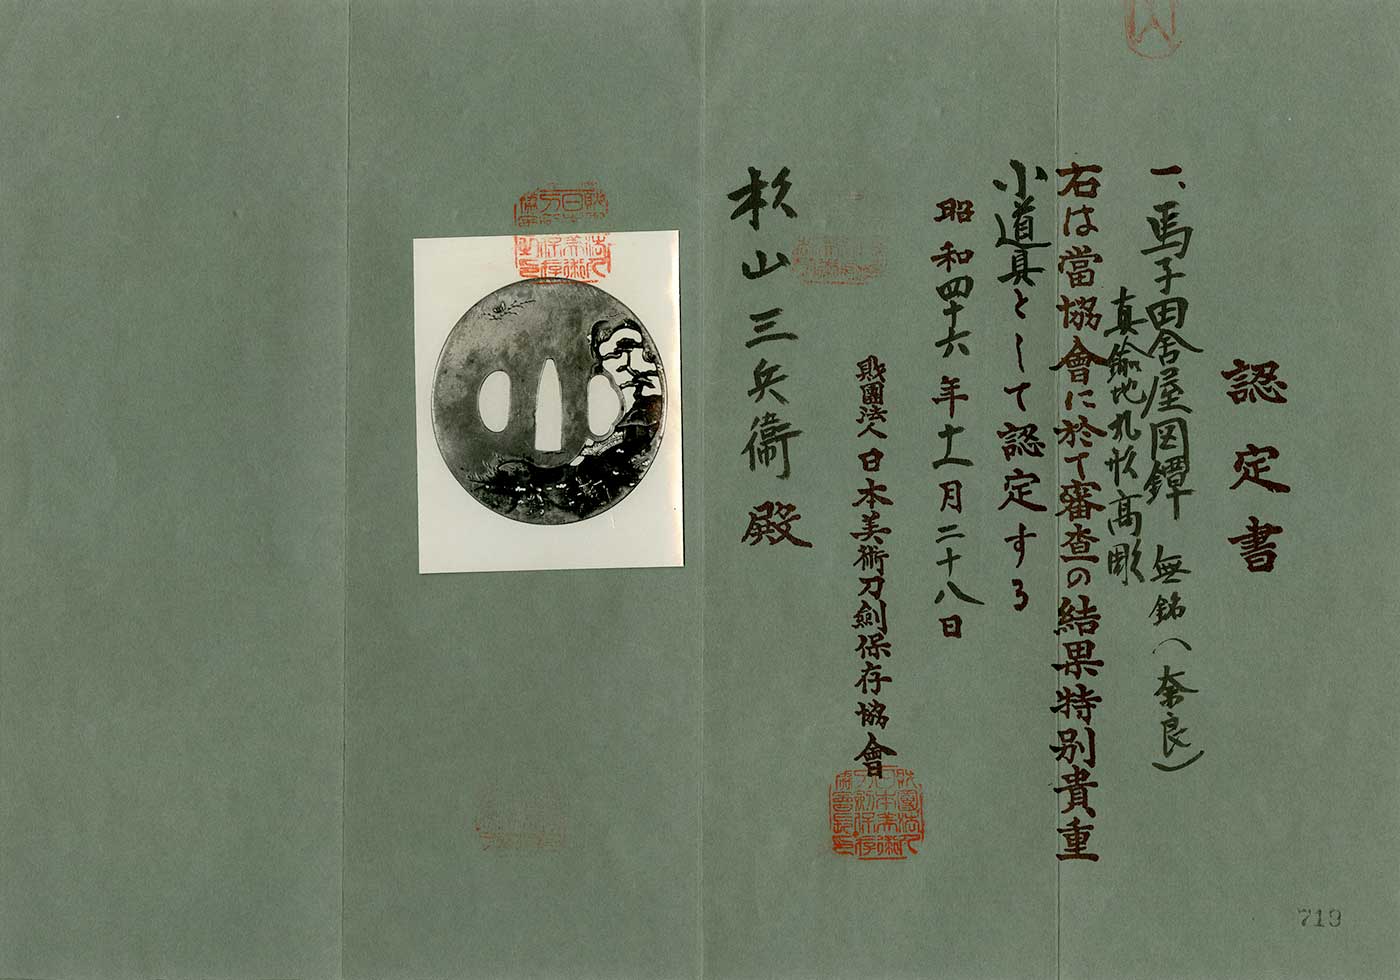 認定書
一、馬子田舎屋図鐔 無銘(奈良)
真鍮地丸形高彫
右は當協會に於て審査の結果特別貴重
小道具として認定する
昭和四十六年十一月二十八日
財團法人日本美術刀劍保存協會
杉山三兵衞殿
719